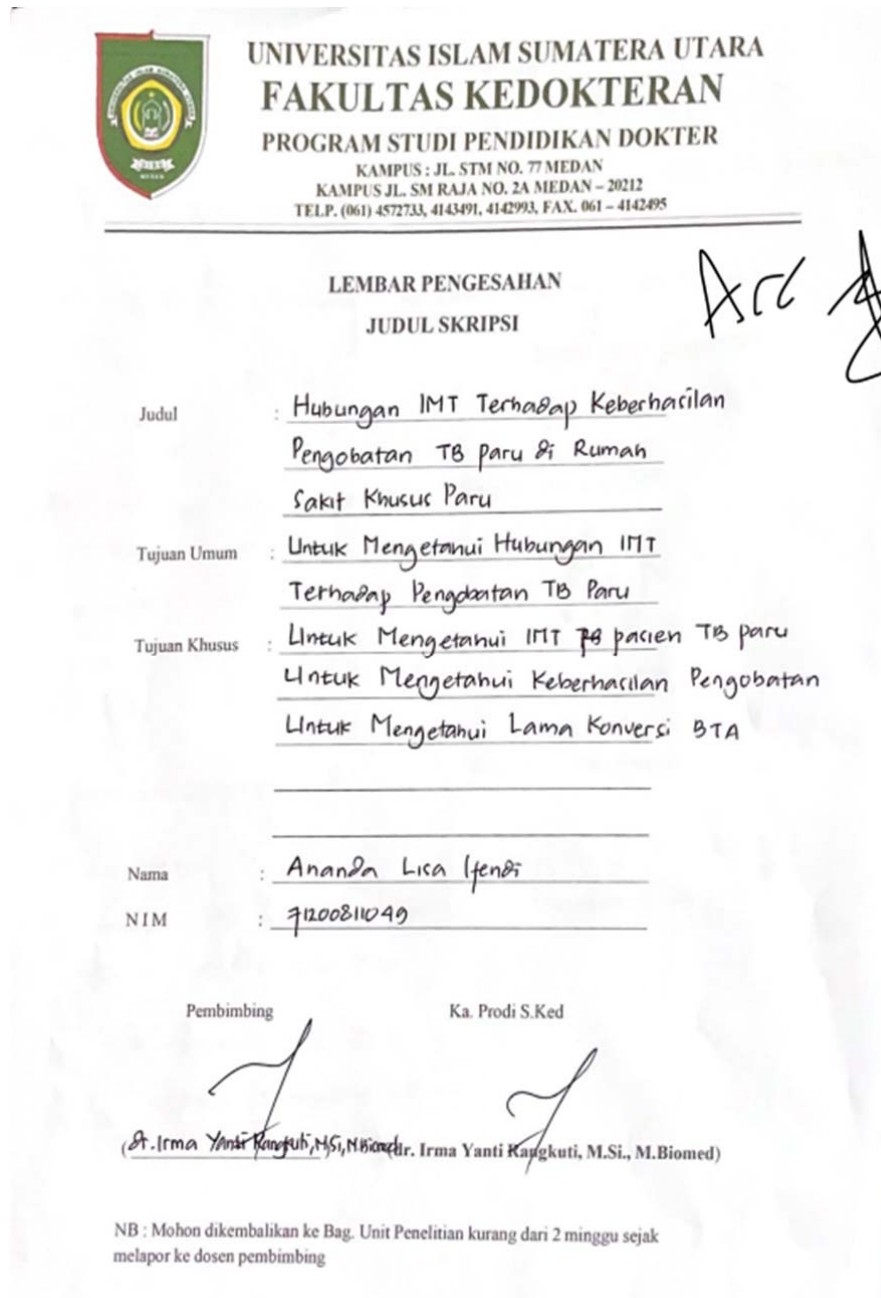 UNIVERSITAS ISLAM SUMATERA UTARA
FAKULTAS KEDOKTERAN
PROGRAM STUDI PENDIDIKAN DOKTER
KAMPUS : JL. STM NO. 77 MEDAN
KAMPUS JL. SM RAJA NO. 2A MEDAN – 20212
TELP. (061) 4572733, 4143491, 4142993, FAX. 061 – 4142495
LEMBAR PENGESAHAN
JUDUL SKRIPSI
Acc
Judul : Hubungan IMT Terhadap Keberhasilan
Pengobatan TB paru di Rumah
Sakit Khusus Paru
Tujuan Umum : Untuk Mengetahui Hubungan IMT
Terhadap Pengobatan TB Paru
Tujuan Khusus : Untuk Mengetahui IMT pasien TB paru
Untuk Mengetahui Keberhasilan Pengobatan
Untuk Mengetahui Lama Konversi BTA
Nama : Ananda Lisa Ifendi
NIM : 71200811049
Pembimbing Ka. Prodi S.Ked
(dr. Irma Yanti Rangkuti, M.Si, M.Biomed) (dr. Irma Yanti Rangkuti, M.Si., M.Biomed)
NB : Mohon dikembalikan ke Bag. Unit Penelitian kurang dari 2 minggu sejak
melapor ke dosen pembimbing